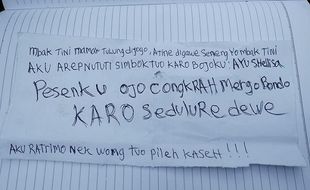 mbak Tini mamak Tulung dijogo, Atine digawe Seneng Yo mbak Tini
AKU AREP NUTUTI SIMBOK TUO KARO BOJOKU : AYU SHelISA
Pesenku OJO CONGKRAH Mergo Bondo
KARO Sedulure dewe
AKU RATRIMO NEK WONG TUO PILEH KASEH !!!